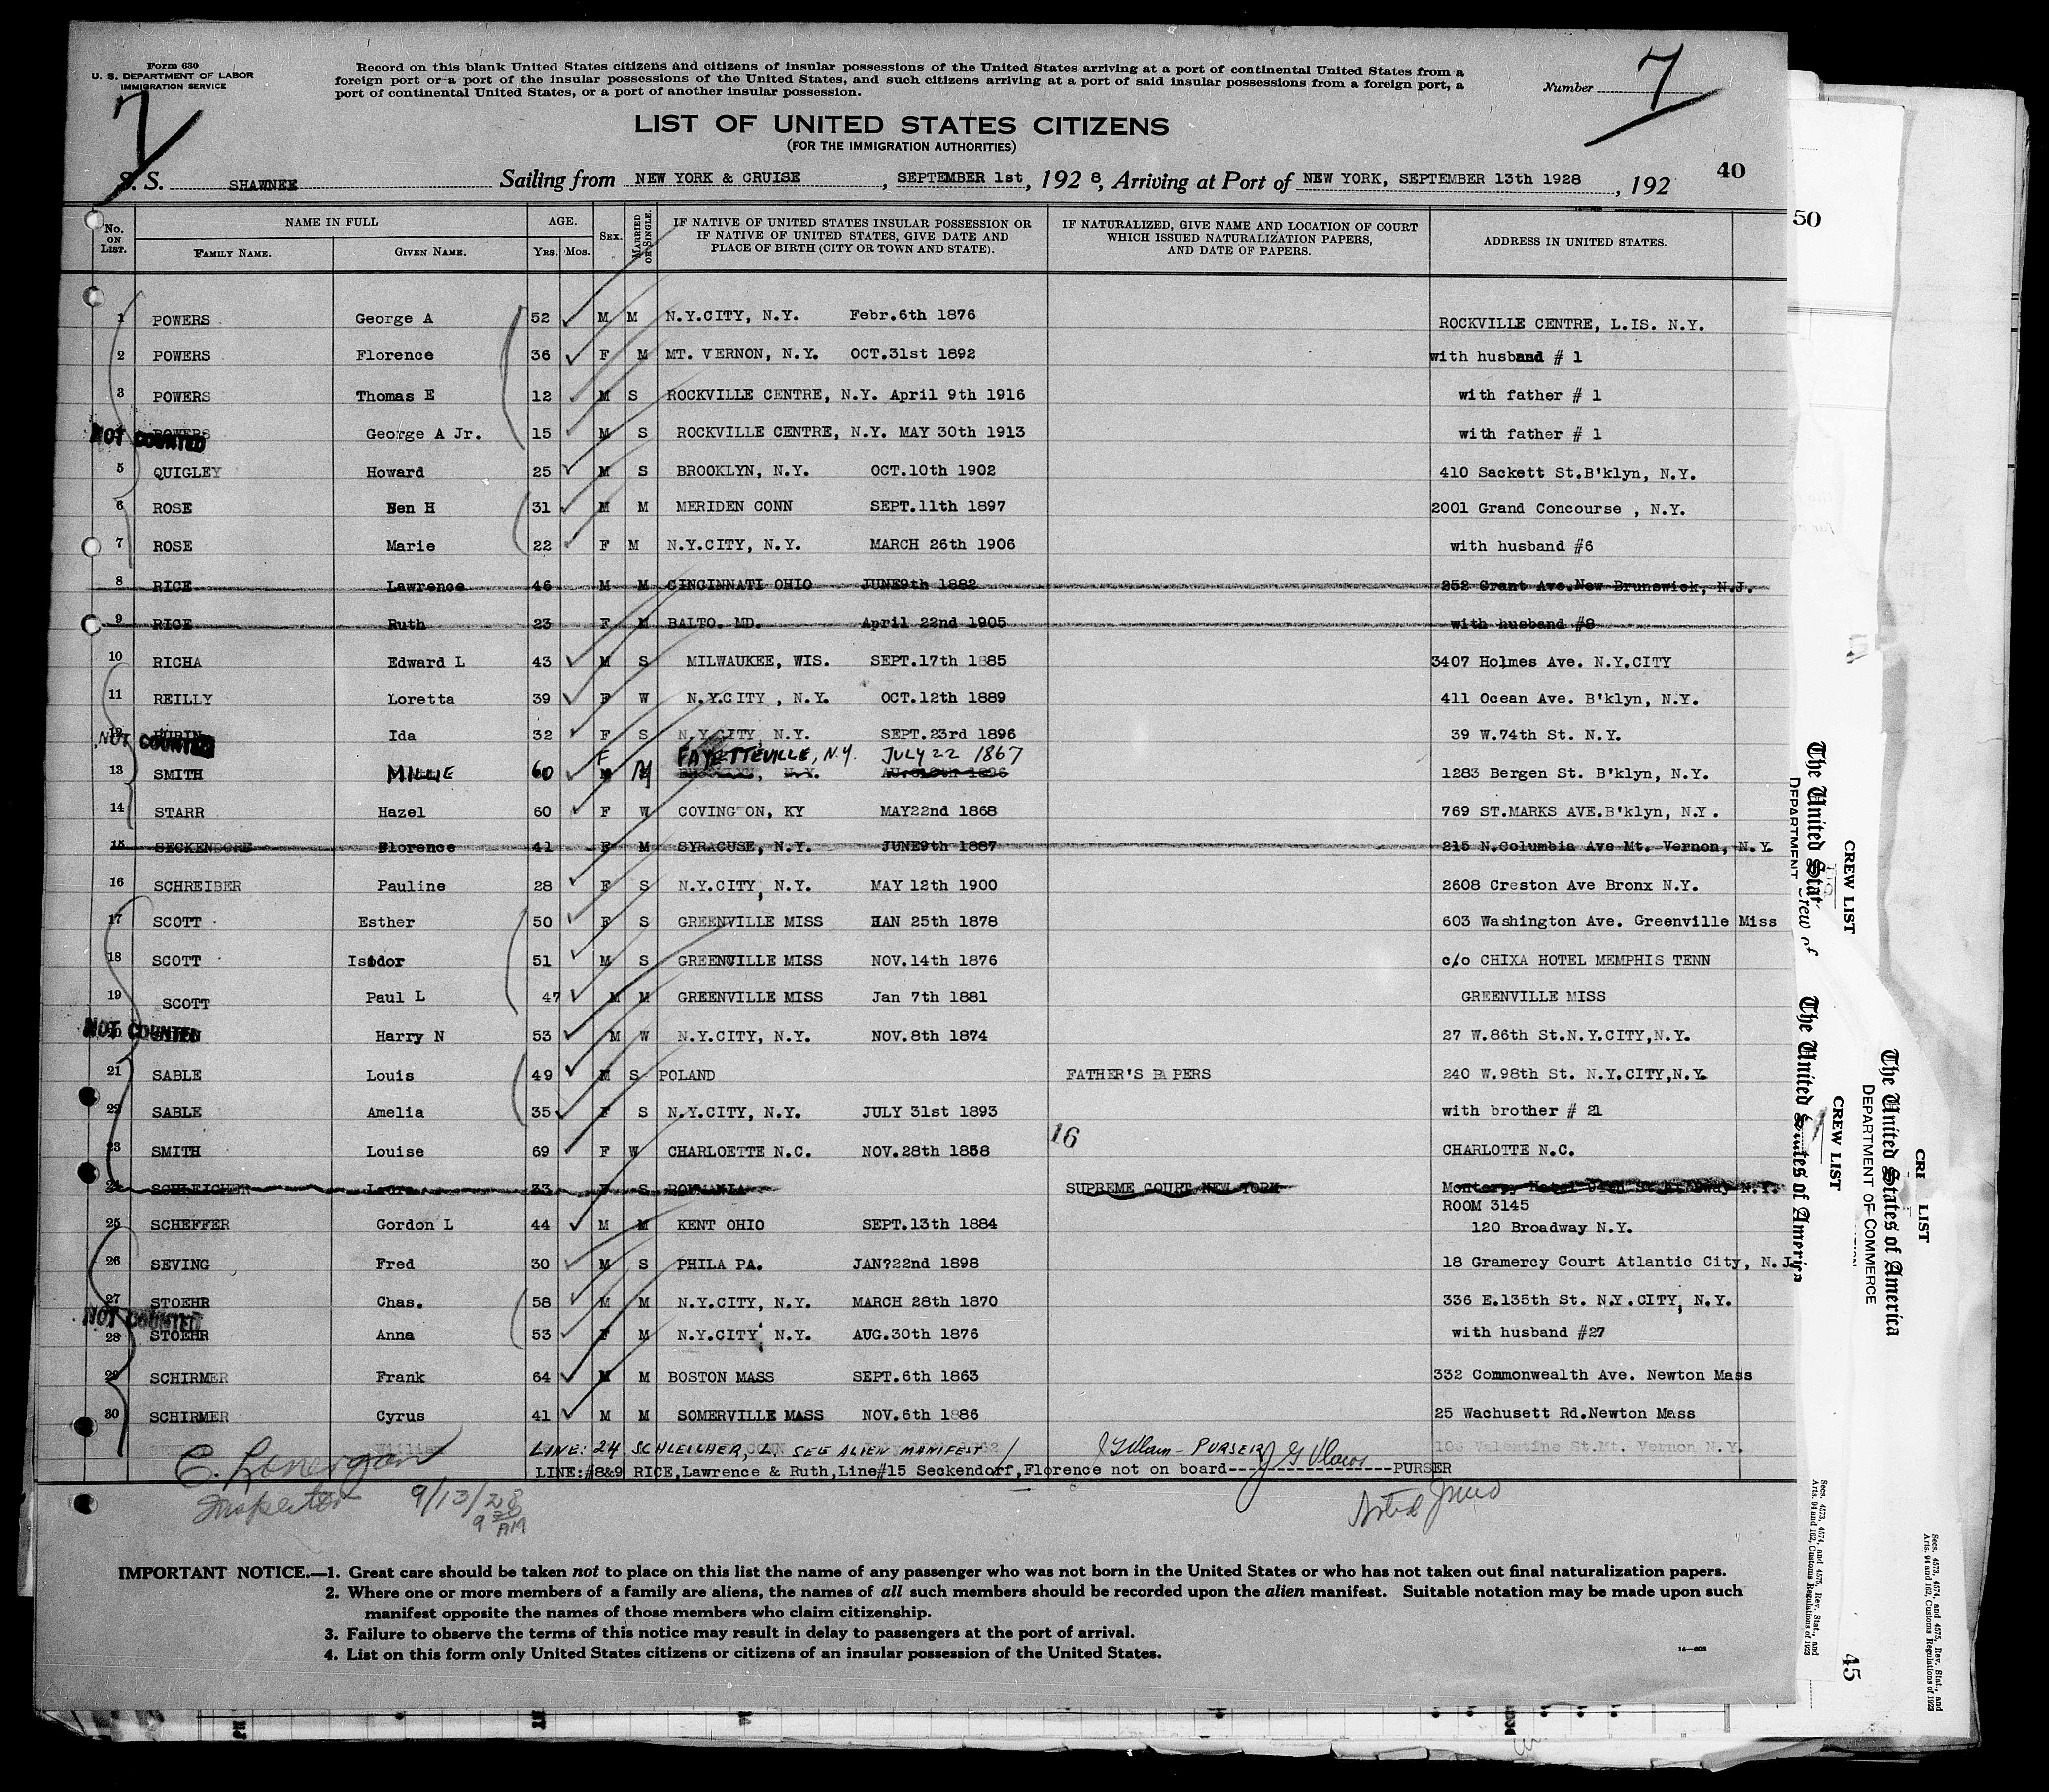 Form 630
U. S. DEPARTMENT OF LABOR
IMMIGRATION SERVICE
Record on this blank United States citizens and citizens of insular possessions of the United States arriving at a port of continental United States from a
foreign port or a port of the insular possessions of the United States, and such citizens arriving at a port of said insular possessions from a foreign port, a
port of continental United States, or a port of another insular possession.
Number 7
7
LIST OF UNITED STATES CITIZENS
(FOR THE IMMIGRATION AUTHORITIES)
40
S. S. SHAWNEE Sailing from NEW YORK & CRUISE, SEPTEMBER 1st, 192 8, Arriving at Port of NEW YORK, SEPTEMBER 13th 1928, 192
No. ON LIST. NAME IN FULL AGE. SEX. MARRIED OR SINGLE. IF NATIVE OF UNITED STATES INSULAR POSSESSION OR IF NATIVE OF UNITED STATES, GIVE DATE AND PLACE OF BIRTH (CITY OR TOWN AND STATE). IF NATURALIZED, GIVE NAME AND LOCATION OF COURT WHICH ISSUED NATURALIZATION PAPERS, AND DATE OF PAPERS. ADDRESS IN UNITED STATES.
FAMILY NAME. GIVEN NAME. YRS. MOS.
1 POWERS George A 52 M M N.Y.CITY, N.Y. Febr.6th 1876 ROCKVILLE CENTRE, L.IS. N.Y.
2 POWERS Florence 36 F M MT. VERNON, N.Y. OCT.31st 1892 with husband # 1
3 POWERS Thomas E 12 M S ROCKVILLE CENTRE, N.Y. April 9th 1916 with father # 1
NOT COUNTED POWERS George A Jr. 15 M S ROCKVILLE CENTRE, N.Y. MAY 30th 1913 with father # 1
5 QUIGLEY Howard 25 M S BROOKLYN, N.Y. OCT.10th 1902 410 Sackett St.B'klyn, N.Y.
6 ROSE Ben H 31 M M MERIDEN CONN SEPT.11th 1897 2001 Grand Concourse , N.Y.
7 ROSE Marie 22 F M N.Y.CITY, N.Y. MARCH 26th 1906 with husband #6
8 RICE Lawrence 46 M M CINCINNATI OHIO JUNE9th 1882 252 Grant Ave.New Brunswick, N.J.
9 RICE Ruth 23 F M BALTO. MD. April 22nd 1905 with husband #8
10 RICHA Edward L 43 M S MILWAUKEE, WIS. SEPT.17th 1885 3407 Holmes Ave. N.Y.CITY
11 REILLY Loretta 39 F W N.Y.CITY , N.Y. OCT.12th 1889 411 Ocean Ave. B'klyn, N.Y.
12 RUBIN Ida 32 F S N.Y.CITY, N.Y. SEPT.23rd 1896 39 W.74th St. N.Y.
NOT COUNTED F FAYETTEVILLE, N.Y. JULY 22 1867
13 SMITH MILLIE 60 M 1283 Bergen St. B'klyn, N.Y.
14 STARR Hazel 60 F W COVINGTON, KY MAY22nd 1868 769 ST.MARKS AVE.B'klyn, N.Y.
15 SECKENDORF Florence 41 F M SYRACUSE, N.Y. JUNE9th 1887 215 N.Columbia Ave Mt. Vernon, N.Y.
16 SCHREIBER Pauline 28 F S N.Y.CITY, N.Y. MAY 12th 1900 2608 Creston Ave Bronx N.Y.
17 SCOTT Esther 50 F S GREENVILLE MISS JAN 25th 1878 603 Washington Ave. Greenville Miss
18 SCOTT Isidor 51 M S GREENVILLE MISS NOV.14th 1876 c/o CHIXA HOTEL MEMPHIS TENN
19 SCOTT Paul L 47 M M GREENVILLE MISS Jan 7th 1881 GREENVILLE MISS
NOT COUNTED Harry N 53 M W N.Y.CITY, N.Y. NOV.8th 1874 27 W.86th St.N.Y.CITY,N.Y.
21 SABLE Louis 49 M S POLAND FATHER'S PAPERS 240 W.98th St. N.Y.CITY,N.Y.
22 SABLE Amelia 35 F S N.Y.CITY, N.Y. JULY 31st 1893 with brother # 21
16
23 SMITH Louise 69 F W CHARLOETTE N.C. NOV.28th 1858 CHARLOTTE N.C.
24 SCHLEICHER Laura 33 F S ROUMANIA SUPREME COURT NEW YORK Monterey Hotel 94th St. B'dway N.Y.
ROOM 3145
25 SCHEFFER Gordon L 44 M M KENT OHIO SEPT.13th 1884 120 Broadway N.Y.
26 SEVING Fred 30 M S PHILA PA. JAN?22nd 1898 18 Gramercy Court Atlantic City, N.J.
27 STOEHR Chas. 58 M M N.Y.CITY, N.Y. MARCH 28th 1870 336 E.135th St. N.Y.CITY, N.Y.
NOT COUNTED
28 STOEHR Anna 53 F M N.Y.CITY N.Y. AUG.30th 1876 with husband #27
29 SCHIRMER Frank 64 M M BOSTON MASS SEPT.6th 1863 332 Commonwealth Ave. Newton Mass
30 SCHIRMER Cyrus 41 M M SOMERVILLE MASS NOV.6th 1886 25 Wachusett Rd.Newton Mass
William LINE: 24 SCHLEICHER, L. SEE ALIEN MANIFEST PURSER 106 Valentine St.Mt. Vernon N.Y.
LINE:#8&9 RICE,Lawrence & Ruth,Line#15 Seckendorf,Florence not on board PURSER
E. Lonergan
Inspector 9/13/28
9 AM
IMPORTANT NOTICE.—1. Great care should be taken not to place on this list the name of any passenger who was not born in the United States or who has not taken out final naturalization papers.
2. Where one or more members of a family are aliens, the names of all such members should be recorded upon the alien manifest. Suitable notation may be made upon such
manifest opposite the names of those members who claim citizenship.
3. Failure to observe the terms of this notice may result in delay to passengers at the port of arrival.
4. List on this form only United States citizens or citizens of an insular possession of the United States.
50
The United Stat
DEPARTMENT
Crew of
CREW LIST
The United States of America
CREW LIST
DEPARTMENT OF COMMERCE
The United States of America
CRE LIST
Secs. 4573, 4574, and 4575, Rev. Stat., and
Arts. 94 and 162, Customs Regulations of 1923
45
Secs. 4573, 4574, and 4575, Rev. Stat., and
Arts. 94 and 162, Customs Regulations of 1923